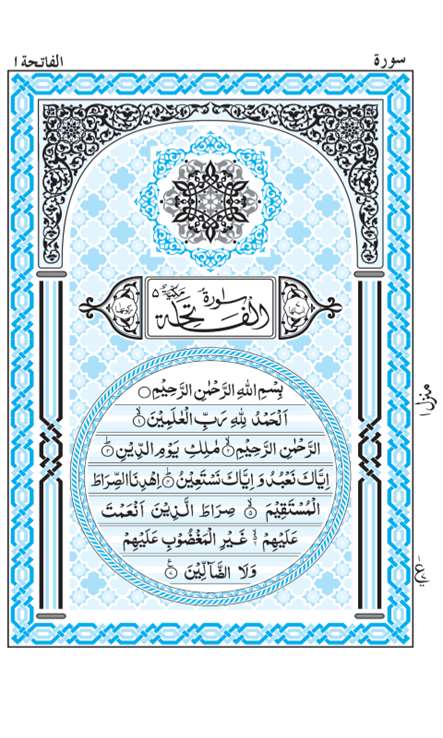 سورة
الفاتحة ١
سُورَةُ
الْفَاتِحَة
مَكِّيَّةٌ ٥
بِسْمِ اللهِ الرَّحْمٰنِ الرَّحِيْمِ
اَلْحَمْدُ لِلّٰهِ رَبِّ الْعٰلَمِيْنَ ۙ‏﴿١﴾
الرَّحْمٰنِ الرَّحِيْمِ ۙ‏﴿٢﴾ مٰلِكِ يَوْمِ الدِّيْنِ ؕ‏﴿٣﴾
اِيَّاكَ نَعْبُدُ وَ اِيَّاكَ نَسْتَعِيْنُ ؕ‏﴿٤﴾ اِهْدِنَا الصِّرَاطَ
الْمُسْتَقِيْمَ ۙ‏﴿٥﴾ صِرَاطَ الَّذِيْنَ اَنْعَمْتَ
عَلَيْهِمْ ۙ‏﴿٦﴾ غَيْرِ الْمَغْضُوْبِ عَلَيْهِمْ
وَلَا الضَّآلِّيْنَ ‏﴿٧﴾
منزل ١